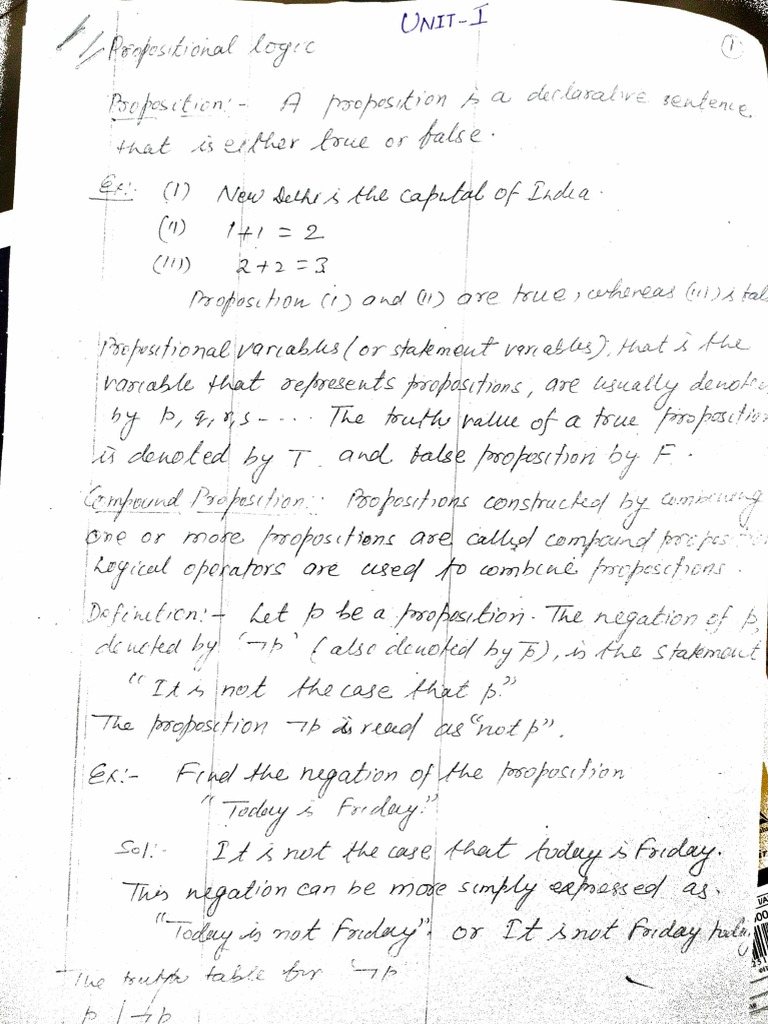 UNIT-I
1
1, Propositional logic
Proposition:- A proposition is a declarative sentence
that is either true or false.
Ex:- (i) New Delhi is the capital of India.
(ii) 1+1 = 2
(iii) 2+2 = 3
Proposition (i) and (ii) are true, whereas (iii) is fals
Propositional variables (or statement variables), that is the
variable that represents propositions, are usually denote
by p, q, r, s - - - . The truth value of a true proposition
is denoted by T and false proposition by F.
Compound Proposition:- Propositions constructed by combining
one or more propositions are called compound proposition
Logical operators are used to combine propositions.
Definition:- Let p be a proposition. The negation of p,
denoted by '¬p' (also denoted by p̅), is the statement
"It is not the case that p."
The proposition ¬p is read as "not p".
Ex:- Find the negation of the proposition
"Today is Friday."
Sol:- It is not the case that today is Friday.
This negation can be more simply expressed as.
"Today is not Friday". or It is not Friday today
The truth table for '¬p'
p | ¬p